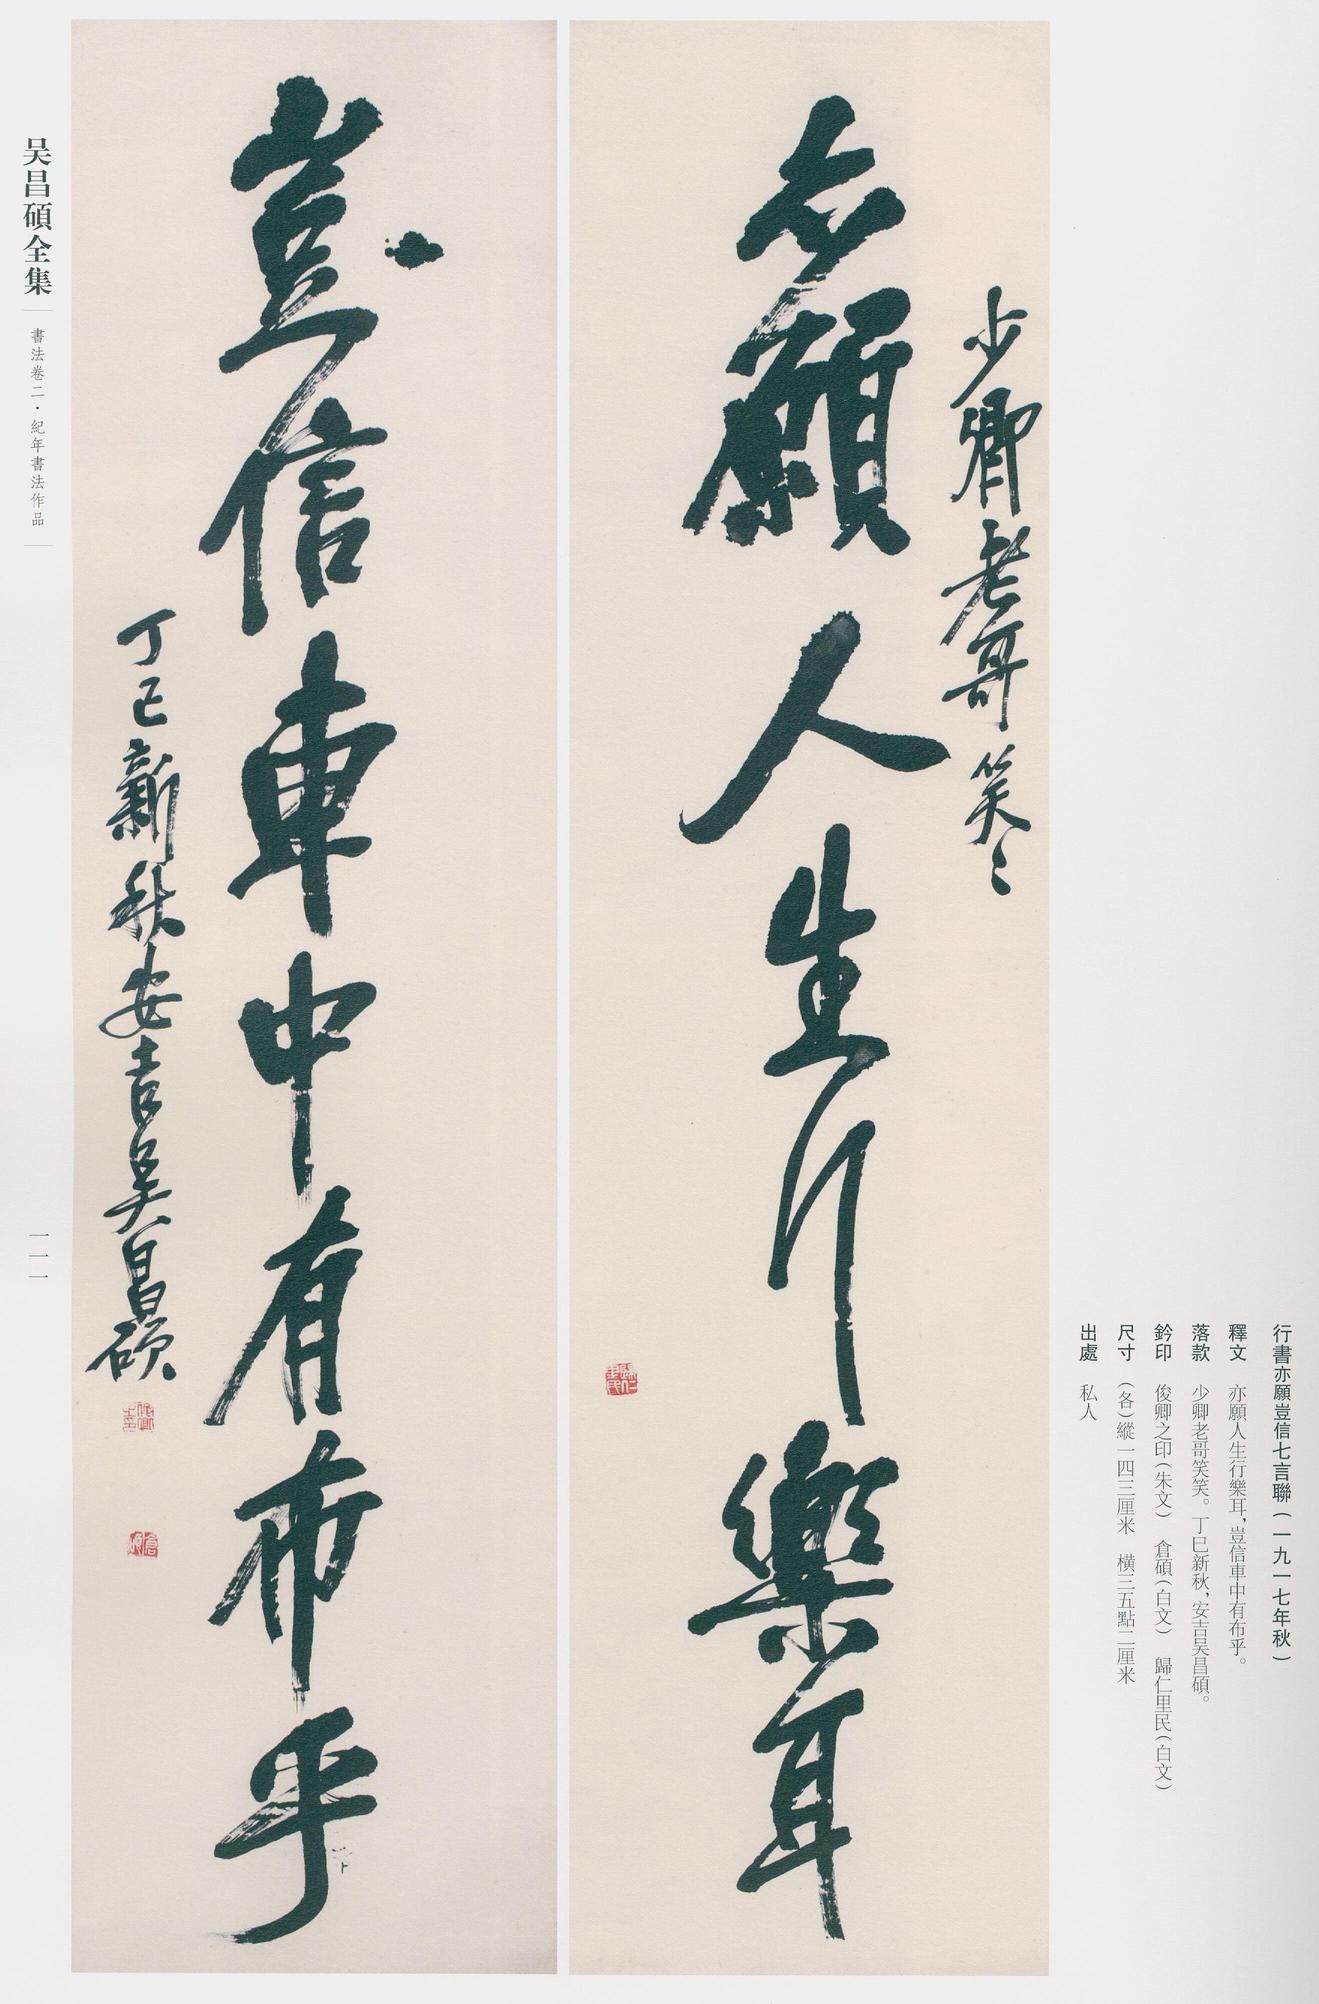 行書亦願豈信七言聯(一九一七年秋)
釋文 亦願人生行樂耳,豈信車中有布乎。
落款 少卿老哥笑笑。丁巳新秋,安吉吴昌碩。
鈐印 俊卿之印(朱文) 倉碩(白文) 歸仁里民(白文)
尺寸 (各)縱一四三厘米 橫三五點二厘米
出處 私人
少卿老哥笑〻
亦願人生行樂耳
歸仁里民
豈信車中有布乎
丁巳新秋安吉吴昌碩
俊卿之印
倉碩
吴昌碩全集
書法卷二·紀年書法作品
一一一